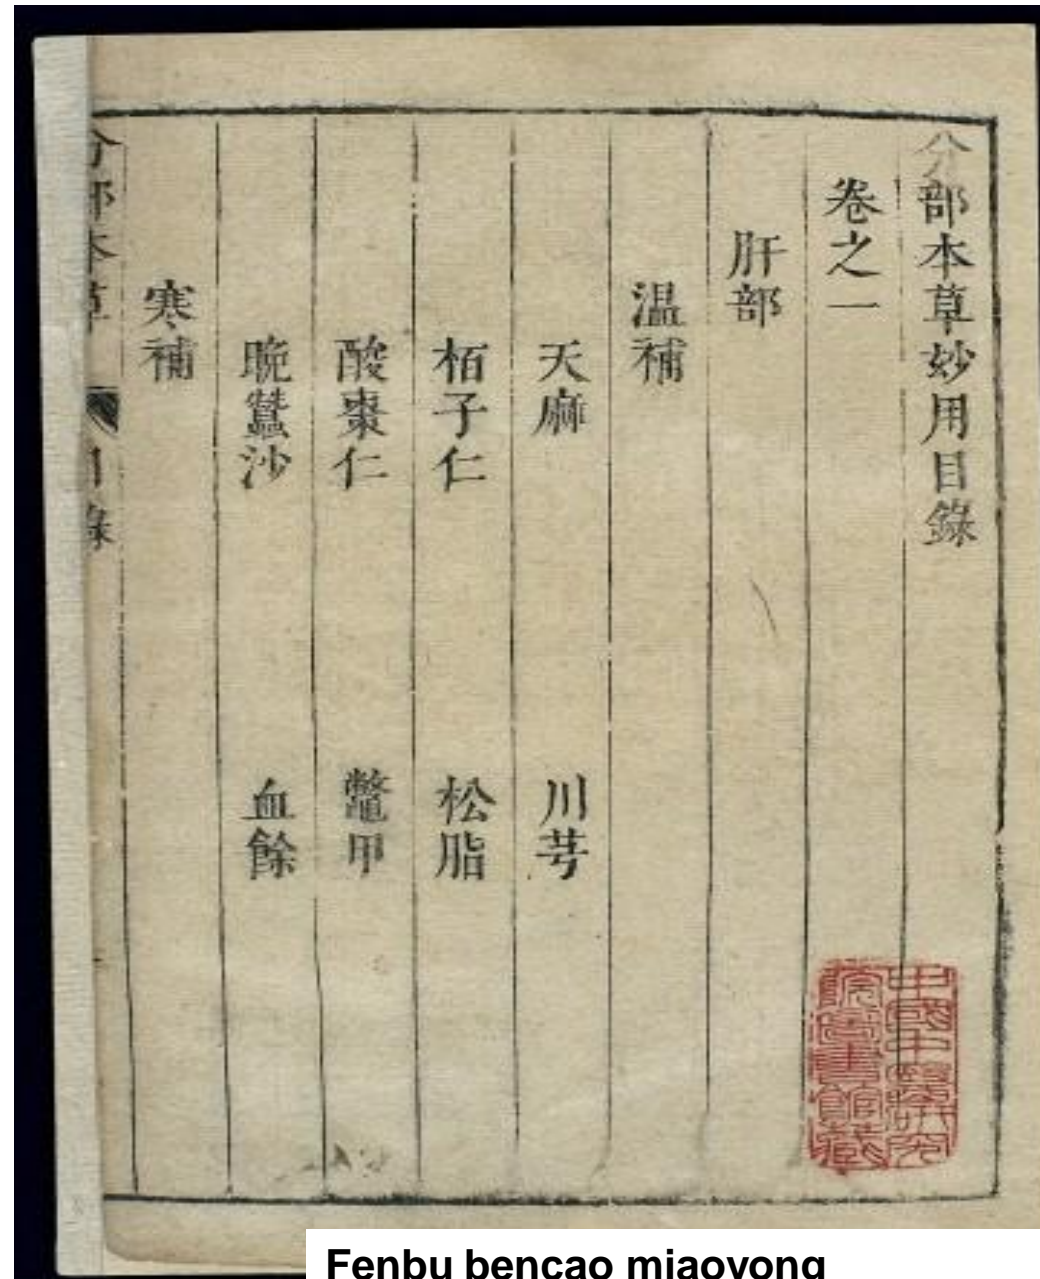 分部本草妙用目錄
卷之一
肝部
温補
天麻 川芎
栢子仁 松脂
酸棗仁 鼈甲
晚蠶沙 血餘
寒補
分部本草 目錄
中國中醫研究
院圖書館藏
Fenbu bencao miaoyong